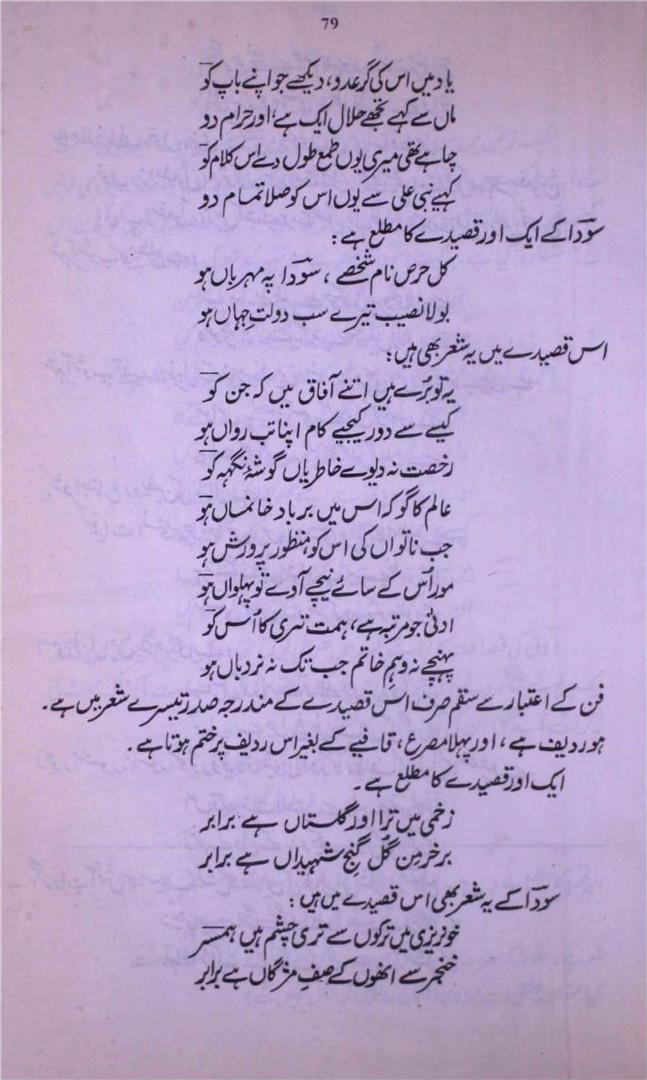 79
یاد میں اس کی گر عدو، دیکھے جو اپنے باپ کو
ماں سے کہے مجھے حلال ایک ہے، اور حرام دو
چاہے تھی میری یوں طمع طول دے اس کلام کو
کہیے نبی علی سے یوں اس کو صلا تمام دو
سودا کے ایک اور قصیدے کا مطلع ہے :
کل حرص نام شخصے ، سودا پہ مہرباں ہو
بولا نصیب تیرے سب دولتِ جہاں ہو
اس قصیدے میں یہ شعر بھی ہیں :
یہ تو بُرے ہیں اتنے آفاق میں کہ جن کو
کیسے سے دور کیجیے کام اپنا تب رواں ہو
رخصت نہ دیوے خاطر یاں گوشۂ نگہہ کو
عالم کا گو کہ اس میں برباد خانماں ہو
جب ناتواں کی اس کو منظور پرورش ہو
مور اُس کے سائے نیچے آوے تو پہلواں ہو
ادنیٰ جو مرتبہ ہے، ہمت تری کا اُس کو
پہنچے نہ وہمِ خاتم جب تک نہ نردباں ہو
فن کے اعتبار سے سقم صرف اس قصیدے کے مندرجہ صدر تیسرے شعر میں ہے ۔
ہو ردیف ہے ، اور پہلا مصرع ، قافیے کے بغیر اس ردیف پر ختم ہوتا ہے ۔
ایک اور قصیدے کا مطلع ہے ۔
زخمی میں ترا اور گلستاں ہے برابر
بر خرمنِ گُل گنجِ شہیداں ہے برابر
سودا کے یہ شعر بھی اس قصیدے میں ہیں :
خونریزی میں ترکوں سے تری چشم ہیں ہمسر
خنجر سے انھوں کے صفِ مژگاں ہے برابر